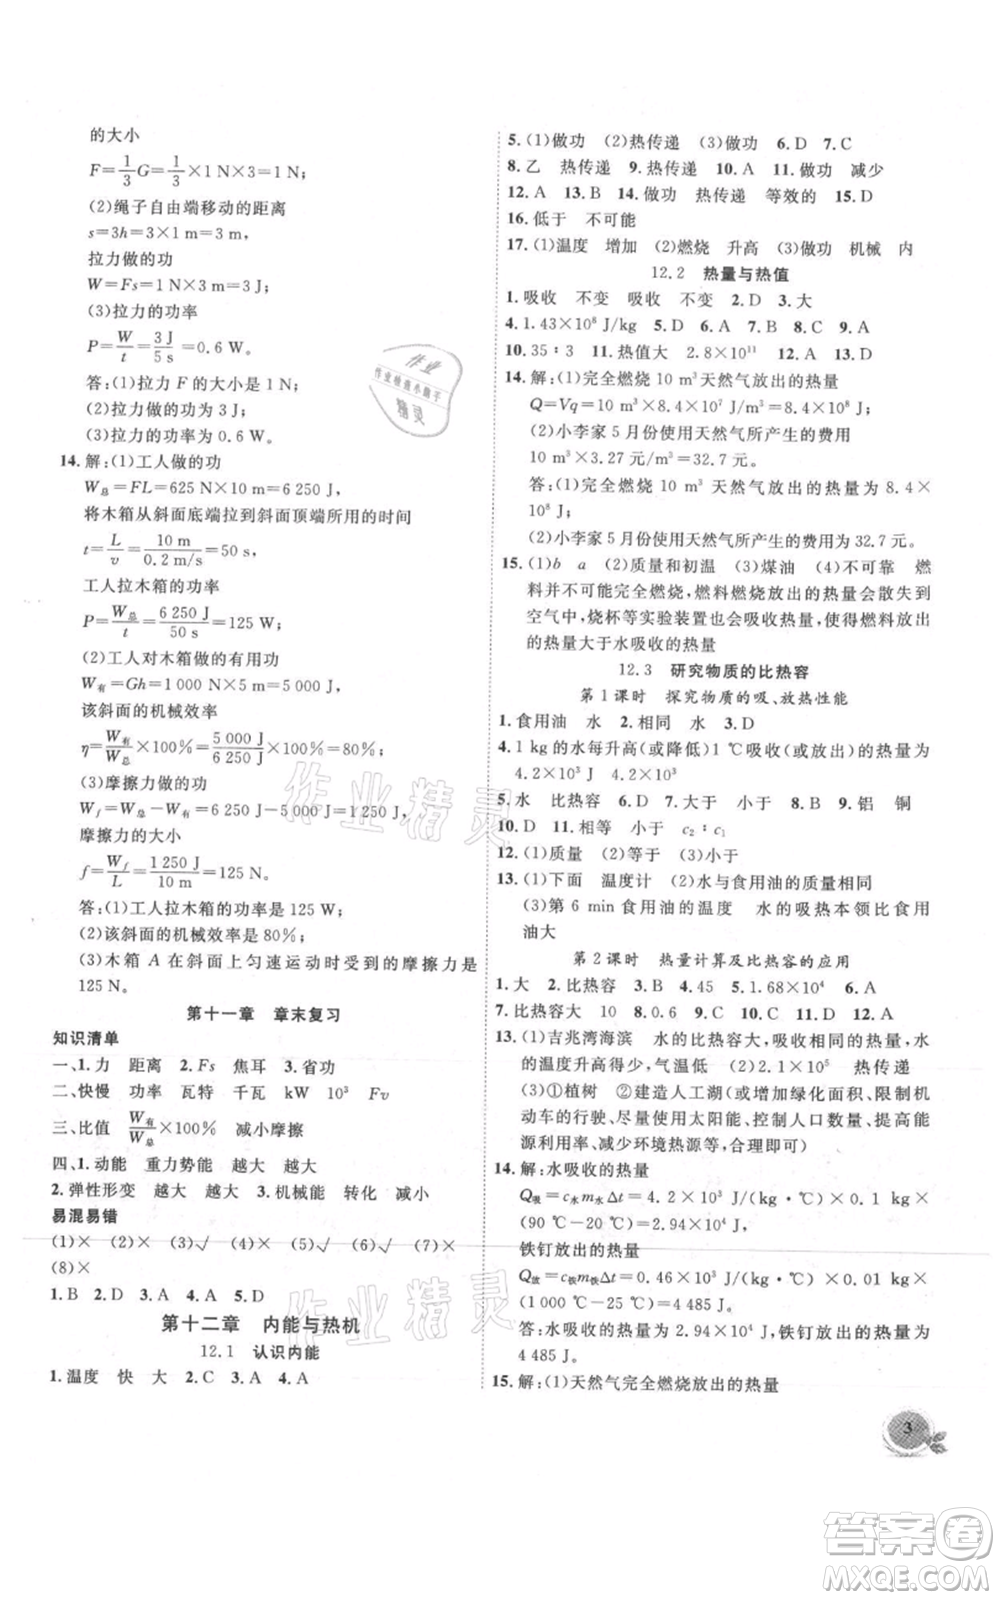 的大小
F=1/3G=1/3×1 N×3=1 N;
(2)绳子自由端移动的距离
s=3h=3×1 m=3 m,
拉力做的功
W=Fs=1 N×3 m=3 J;
(3)拉力的功率
P=W/t=3 J/5 s=0.6 W。
答:(1)拉力 F 的大小是 1 N;
(2)拉力做的功为 3 J;
(3)拉力的功率为 0.6 W。
14.解:(1)工人做的功
W总=FL=625 N×10 m=6 250 J,
将木箱从斜面底端拉到斜面顶端所用的时间
t=L/v=10 m/0.2 m/s=50 s,
工人拉木箱的功率
P=W总/t=6 250 J/50 s=125 W;
(2)工人对木箱做的有用功
W有=Gh=1 000 N×5 m=5 000 J,
该斜面的机械效率
η=W有/W总×100%=5 000 J/6 250 J×100%=80%;
(3)摩擦力做的功
Wf=W总-W有=6 250 J-5 000 J=1 250 J,
摩擦力的大小
f=Wf/L=1 250 J/10 m=125 N。
答:(1)工人拉木箱的功率是 125 W;
(2)该斜面的机械效率是 80%;
(3)木箱 A 在斜面上匀速运动时受到的摩擦力是
125 N。
第十一章 章末复习
知识清单
一、1.力 距离 2.Fs 焦耳 3.省功
二、快慢 功率 瓦特 千瓦 kW 10³ Fv
三、比值 W有/W总×100% 减小摩擦
四、1.动能 重力势能 越大 越大
2.弹性形变 越大 越大 3.机械能 转化 减小
易混易错
(1)× (2)× (3)√ (4)√ (5)√ (6)× (7)×
(8)×
1.B 2.D 3.A 4.A 5.D
第十二章 内能与热机
12.1 认识内能
1.温度 快 大 2.C 3.A 4.A
5.(1)做功 (2)热传递 (3)做功 6.D 7.C
8.乙 热传递 9.热传递 10.A 11.做功 减少
12.A 13.B 14.做功 热传递 等效的 15.D
16.低于 不可能
17.(1)温度 增加 (2)燃烧 升高 (3)做功 机械 内
12.2 热量与热值
1.吸收 不变 吸收 不变 2.D 3.大
4.1.43×10⁸ J/kg 5.D 6.A 7.B 8.C 9.A
10.35∶3 11.热值大 2.8×10¹¹ 12.D 13.D
14.解:(1)完全燃烧 10 m³天然气放出的热量
Q=Vq=10 m³×8.4×10⁷ J/m³=8.4×10⁸ J;
(2)小李家 5 月份使用天然气所产生的费用
10 m³×3.27 元/m³=32.7 元。
答:(1)完全燃烧 10 m³ 天然气放出的热量为 8.4×
10⁸ J;
(2)小李家 5 月份使用天然气所产生的费用为 32.7 元。
15.(1)b a (2)质量和初温 (3)煤油 (4)不可靠 燃
料并不可能完全燃烧,燃料燃烧放出的热量会散失到
空气中,烧杯等实验装置也会吸收热量,使得燃料放出
的热量大于水吸收的热量
12.3 研究物质的比热容
第 1 课时 探究物质的吸、放热性能
1.食用油 水 2.相同 水 3.D
4.1 kg的水每升高(或降低)1 ℃吸收(或放出)的热量为
4.2×10³ J 4.2×10³
5.水 比热容 6.D 7.大于 小于 8.D 9.铝 铜
10.D 11.相等 小于 c₂∶c₁
12.(1)质量 (2)等于 (3)小于
13.(1)下面 温度计 (2)水与食用油的质量相同
(3)第 6 min 食用油的温度 水的吸热本领比食用
油大
第 2 课时 热量计算及比热容的应用
1.大 2.比热容 3.B 4.45 5.2.1×10⁴ 6.A
7.比热容大 10 8.0.6 9.C 10.D 11.D 12.A
13.(1)吉兆湾海滨 水的比热容大,吸收相同的热量,水
的温度升高得少,气温低 (2)1.26×10⁵ 热传递
(3)①植树 ②建造人工湖(或增大绿化面积、限制机
动车的行驶、尽量使用太阳能、控制人口数量、提高能
源利用率、减少环境热源等,合理即可)
14.解:水吸收的热量
Q吸=c水m水Δt=4.2×10³ J/(kg·℃)×0.1 kg×
(90 ℃-20 ℃)=2.94×10⁴ J;
铁钉放出的热量
Q放=c铁m铁Δt=0.46×10³ J/(kg·℃)×0.01 kg×
(1 000 ℃-25 ℃)=4 485 J。
答:水吸收的热量为 2.94×10⁴ J,铁钉放出的热量为
4 485 J。
15.解:(1)天然气完全燃烧放出的热量
3
作业
作业检查小助手
精灵
作业精灵
作业精灵
答案圈
MXQE.COM